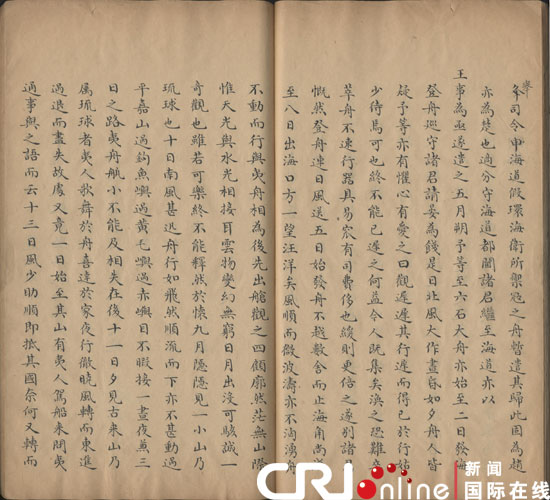 舉
令司令申海道假環海衛所禦寇之舟暫遣其歸此因為趙
亦為楚也適分守海道都閫諸君繼至海道亦以
王事為亟遂遣之五月朔予等至六石大舟亦始至二日發海
登舟巡守諸君請妥為餞是日北風大作晝昏如夕舟人皆
疑予等亦有懼心有愛之曰觀遲遲其行遲而得已於行始
少待焉可也終不能已遲之何益令人既集矣渙之恐難
萃舟不速行器具易窳有司費侈也緩則更倍之遂別諸
慨然登舟連日風逆五日始發舟不越數舍而止海角尚
至八日出海口方一望汪洋矣風順而微波濤亦不洶湧舟
不動而行與夷舟相為後先出艙觀之四顧廓然茫無山際
惟天光與水光相接耳雲物變幻無窮日月出沒可駭誠一
奇觀也雖若可樂終不能釋然於懷九月隱隱見一小山乃
琉球也十日南風甚迅舟行如飛然順流而下亦不甚動過
平嘉山過釣魚嶼過黃毛嶼過赤嶼目不暇接一晝夜兼三
日之路夷舟航小不能及相失在後十一日夕見古米山乃
属琉球者夷人歌舞於舟喜達於家夜行徹曉風轉而東進
過退而盡失故處又竟一日始至其山有夷人駕船來問夷
通事與之語而云十三日風少助順即抵其國奈何又轉而
CRI online
新闻
国际在线